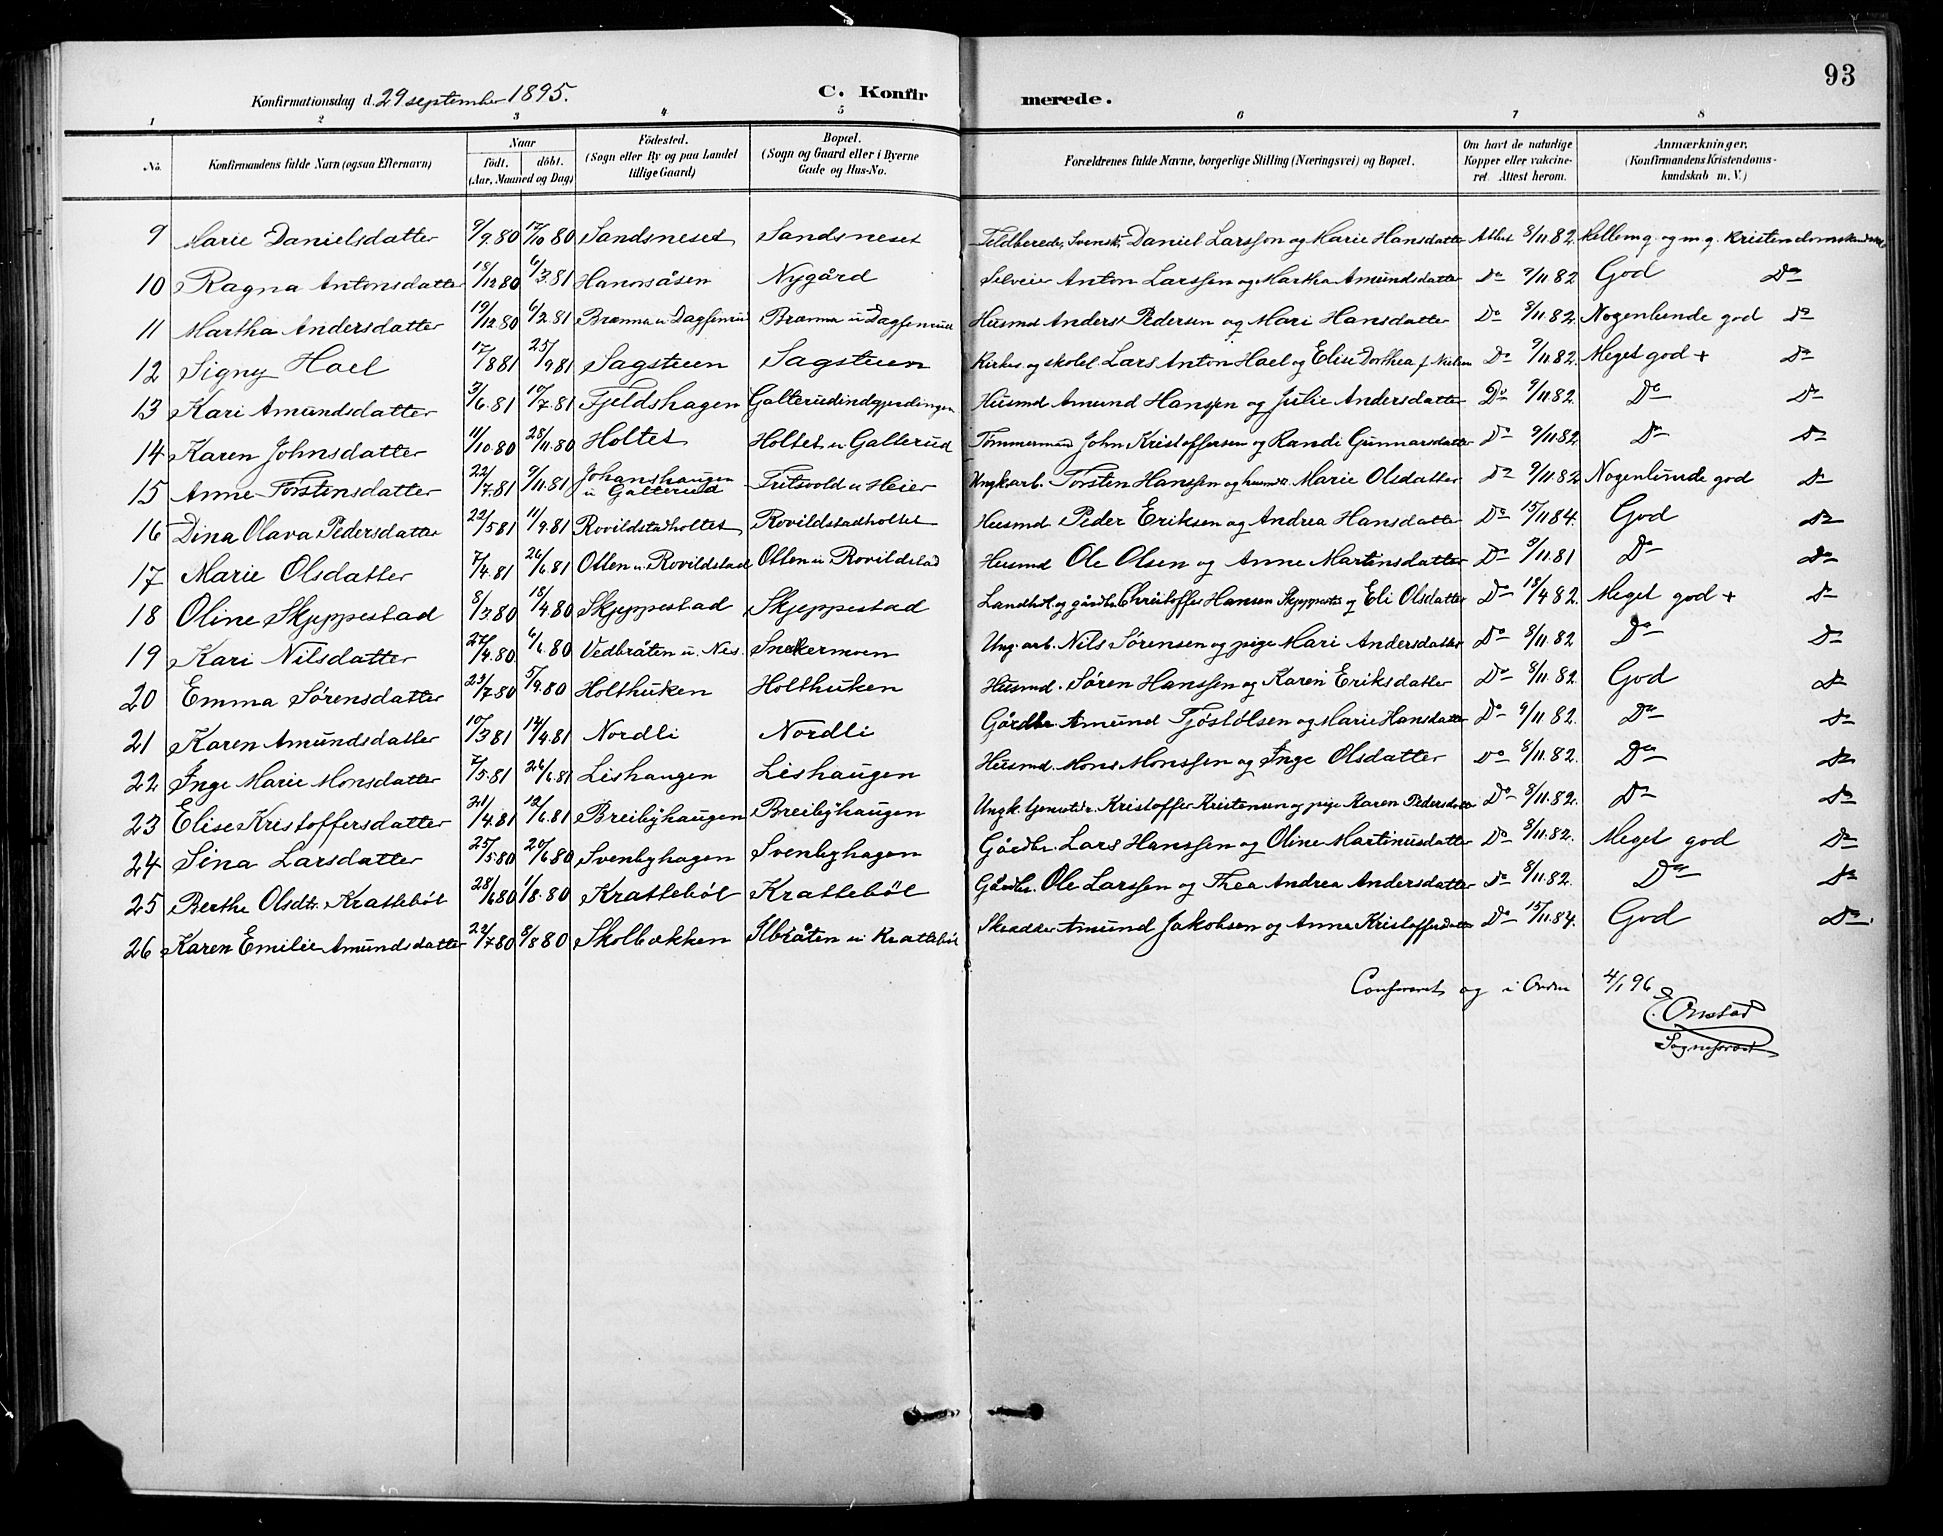 93
Konfirmationsdag d. 29 september 1895. C. Konfirmerede.
1 2 3 4 5 6 7 8
No. Konfirmandens fulde Navn (ogsaa Efternavn) Naar født. døbt. (Aar, Maaned og Dag) Fødested. (Sogn eller By og paa Landet tillige Gaard) Bopæl. (Sogn og Gaard eller i Byerne Gade og Hus-No. Forældrenes fulde Navne, borgerlige Stilling (Næringsvei) og Bopæl. Om havt de naturlige Kopper eller vakcineret. Attest herom. Anmærkninger, (Konfirmandens Kristendomskundskab m. V.)
9 Marie Danielsdatter 9/9.80 17/10 80 Sandsneset Sandsneset Svensk, Daniel Larsson og Marie Hansdatter Attest 8/11 82. Mellem g. og m g. Kristendomskundskab
10 Ragna Antonsdatter 18/12 80 6/3.81 Hanorsåsen Nygård Selveier Anton Larssen og Martha Amundsdatter Do 9/11 82 God Do
11 Martha Andersdatter 19/12.80 6/2.81 Brænna u Dagfinrud Brænna u Dagfinrud Husmd Anders Pedersen og Mari Hansdatter Do 8/11 82. Nogenlunde god Do
12 Signy Hoel 17/8 81 25/9 81 Sagsteen Sagsteen Kirkes. og skolel Lars Anton Hoel og Elise Dorthea f Nielsen Do 9/11 82. Meget god + Do
13 Kari Amundsdatter 3/6.81 10/7.81 Fjeldshagen Galterudindgjerdingen Husmd Amund Hanssen og Julie Andersdatter Do 9/11 82. Do Do
14 Karen Johnsdatter 11/10.80 28/11.80 Holtet Holtet u Galterud Tømmermand John Kristoffersen og Randi Gunnarsdatter Do 9/11 82. Do Do
15 Anne Torstensdatter 22/7.81 9/11.81 Johanshaugen u Galterud Tritsvold u Heier Ungkarb. Torsten Hanssen og Marie Olsdatter Do 9/11 82 Nogenlunde god Do
16 Dina Olava Pedersdatter 22/5 81 11/9.81 Rovildstadholtet Rovildstadholtet Husmd. Peder Eriksen og Andrea Hansdatter Do 15/11 84. God Do
17 Marie Olsdatter 7/4.81 26/6.81 Otten u. Rovildstad Otten u Rovildstad Husmd Ole Olsen og Anne Martinsdatter Do 5/11 81 Do Do
18 Oline Skjeppestad 8/3.80 18/4.80 Skjeppestad Skjeppestad Landh. og gårdbr. Christoffer Hansen Skjeppestad og Eli Olsdatter Do 18/4 82. Meget god + Do
19 Kari Nilsdatter 27/4.80 6/6.80 Vedbråten u. Nes. Snekermoen Ung. arb. Nils Sørensen og pige Mari Andersdatter Do 8/11 82 Do Do
20 Emma Sørensdatter 23/7.80 5/9.80 Holthuken Holthuken Husmd. Søren Hanssen og Karen Eriksdatter Do 8/11 82. God Do
21 Karen Amundsdatter 10/3 81 14/4.81 Nordli Nordli Gårdbr. Amund Tjøstolsen og Marie Hansdatter Do 9/11 82. Do Do
22 Inge Marie Monsdatter 7/5.81 26/6.81 Lishaugen Lishaugen Husmd. Mons Monssen og Inge Olsdatter Do 8/11 82. Do Do
23 Elise Kristoffersdatter 21/4.81 12/6.81 Breibyhaugen Breibyhaugen Ungk. tjenestdr. Kristoffer Kristensen og pige Karen Pedersdatter Do 8/11 82. Do Do
24 Sina Larsdatter 25/5 80 20/6.80 Svenbyhagen Svenbyhagen Gårdbr. Lars Hanssen og Oline Martinusdatter Do 8/11 82. Meget god Do
25 Berthe Olsdtr. Krattebøl 28/6 80 1/8.80 Krattebøl Krattebøl Gårdbr. Ole Larssen og Thea Andrea Andersdatter Do 8/11 82. Do Do
26 Karen Emilie Amundsdatter 22/7 80 8/8 80 Skolbækken Ilbråten u Krattebøl Skrædder Amund Jakobsen og Anne Kristoffersdatter Do 15/11.84. God Do.
Confereret og i Orden 4/1 96
E. Onstad
Sogneprest